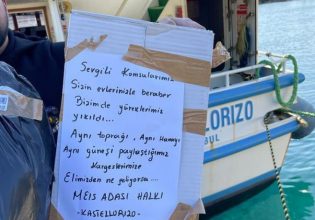 Sevgili Komşularımız
Sizin evlerinizle beraber
Bizimde yüreklerimiz
yıkıldı...
Aynı toprağı, Aynı Havayı
Aynı güneşi paylaştığımız
Kardeşlerimize
Elimizden ne geliyorsa....
MEIS ADASI HALKI
-KASTELLORIZO-
LORIZO
BUL